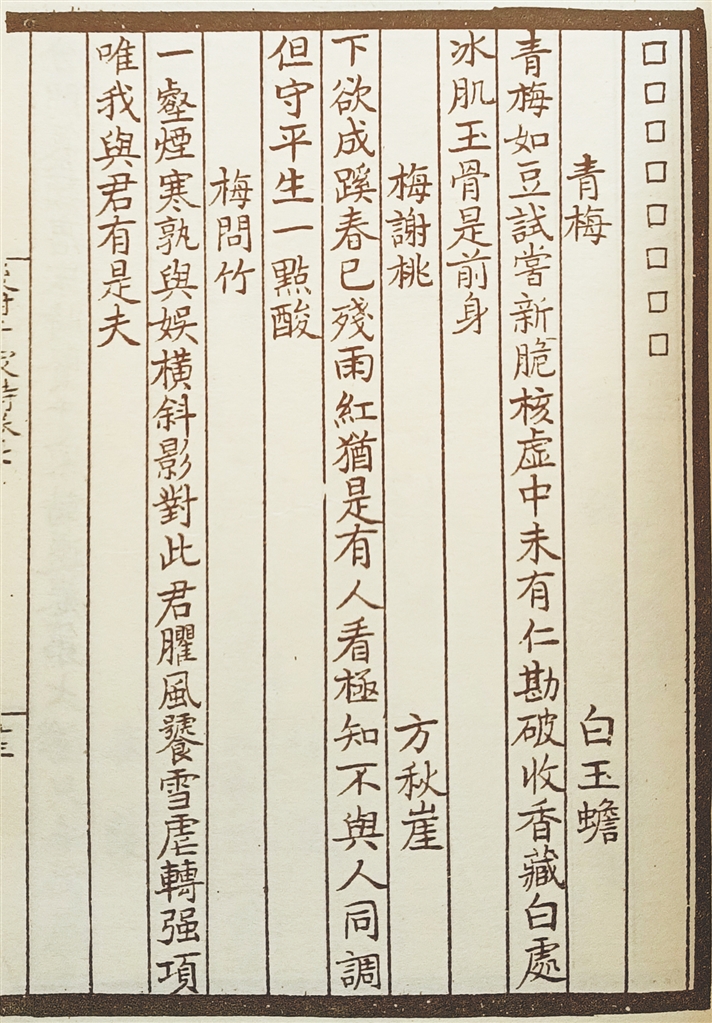 □□□□□□□□
青梅 白玉蟾
青梅如豆試嘗新脆核虛中未有仁勘破收香藏白處
冰肌玉骨是前身
梅謝桃 方秋崖
下欲成蹊春已殘雨紅猶是有人看極知不與人同調
但守平生一點酸
梅問竹
一壑煙寒孰與娛橫斜影對此君臞風饕雪虐轉强項
唯我與君有是夫